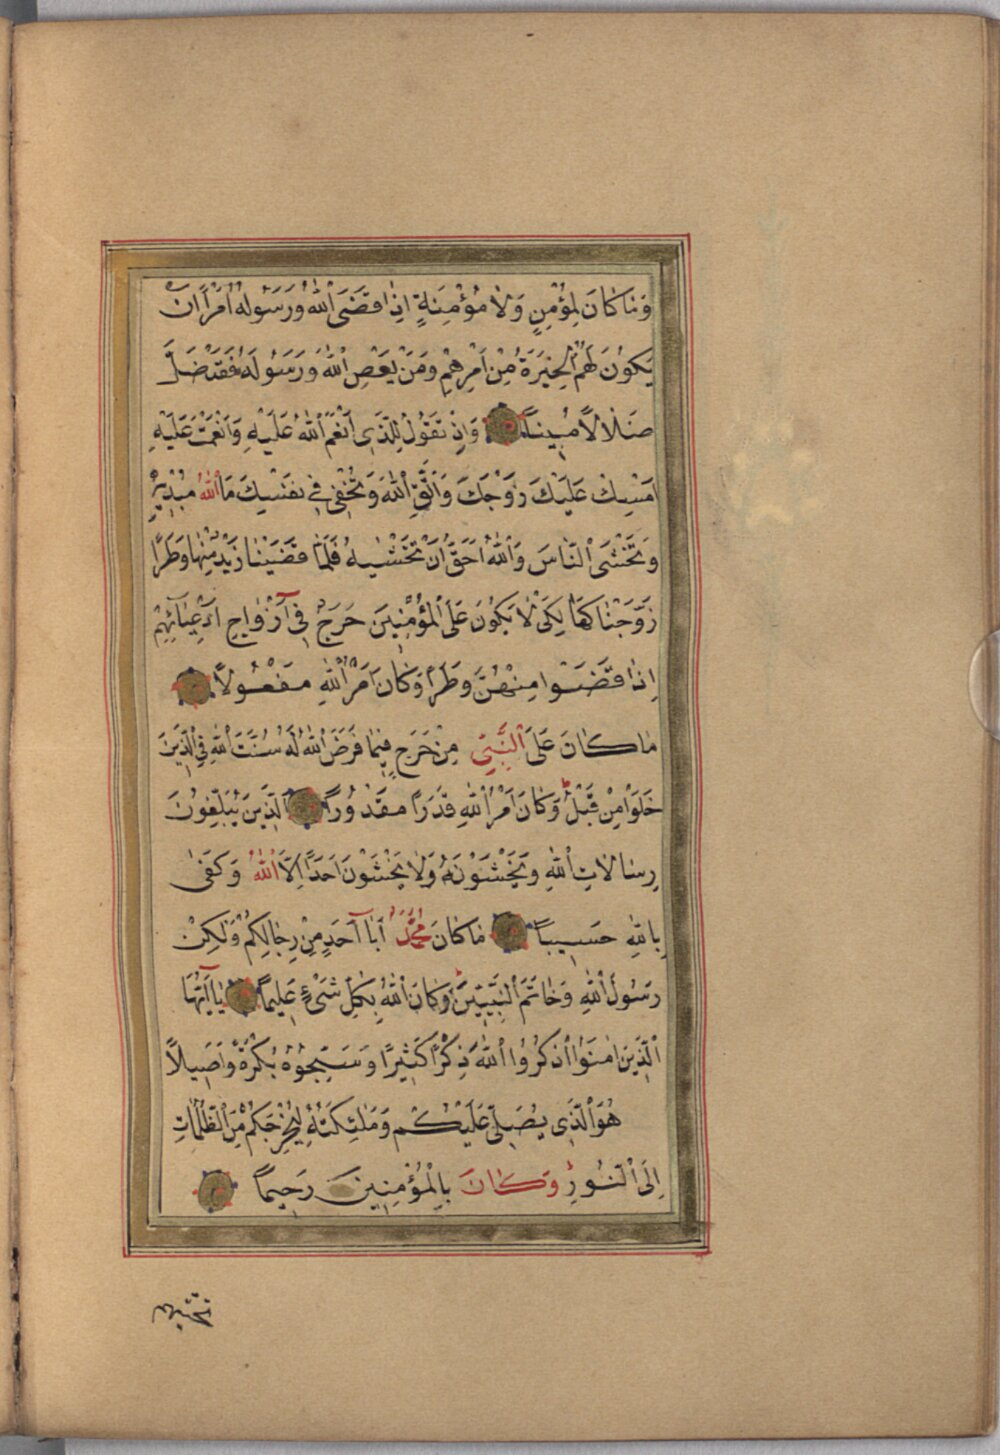 وَمَا كَانَ لِمُؤْمِنٍ وَلَا مُؤْمِنَةٍ اِذَا قَضَى اللّٰهُ وَرَسُولُهُ اَمْرًا اَنْ
يَكُونَ لَهُمُ الْخِيَرَةُ مِنْ اَمْرِهِمْ وَمَنْ يَعْصِ اللّٰهَ وَرَسُولَهُ فَقَدْ ضَلَّ
ضَلَالًا مُبِينًا وَاِذْ تَقُولُ لِلَّذِى اَنْعَمَ اللّٰهُ عَلَيْهِ وَاَنْعَمْتَ عَلَيْهِ
اَمْسِكْ عَلَيْكَ زَوْجَكَ وَاتَّقِ اللّٰهَ وَتُخْفِى فِى نَفْسِكَ مَا اللّٰهُ مُبْدِيهِ
وَتَخْشَى النَّاسَ وَاللّٰهُ اَحَقُّ اَنْ تَخْشٰيهُ فَلَمَّا قَضٰى زَيْدٌ مِنْهَا وَطَرًا
زَوَّجْنَاكَهَا لِكَىْ لَا يَكُونَ عَلَى الْمُؤْمِنِينَ حَرَجٌ فِٓى اَزْوَاجِ اَدْعِيَائِهِمْ
اِذَا قَضَوْا مِنْهُنَّ وَطَرًا وَكَانَ اَمْرُ اللّٰهِ مَفْعُولًا
مَا كَانَ عَلَى النَّبِىِّ مِنْ حَرَجٍ فِيمَا فَرَضَ اللّٰهُ لَهُ سُنَّتَ اللّٰهِ فِى الَّذِينَ
خَلَوْا مِنْ قَبْلُ وَكَانَ اَمْرُ اللّٰهِ قَدَرًا مَقْدُورًا اَلَّذِينَ يُبَلِّغُونَ
رِسَالَاتِ اللّٰهِ وَيَخْشَوْنَهُ وَلَا يَخْشَوْنَ اَحَدًا اِلَّا اللّٰهَ وَكَفٰى
بِاللّٰهِ حَسِيبًا مَا كَانَ مُحَمَّدٌ اَبَٓا اَحَدٍ مِنْ رِجَالِكُمْ وَلٰكِنْ
رَسُولَ اللّٰهِ وَخَاتَمَ النَّبِيِّينَ وَكَانَ اللّٰهُ بِكُلِّ شَىْءٍ عَلِيمًا يَٓا اَيُّهَا
الَّذِينَ اٰمَنُوا اذْكُرُوا اللّٰهَ ذِكْرًا كَثِيرًا وَسَبِّحُوهُ بُكْرَةً وَاَصِيلًا
هُوَ الَّذِى يُصَلِّى عَلَيْكُمْ وَمَلٰئِكَتُهُ لِيُخْرِجَكُمْ مِنَ الظُّلُمَاتِ
اِلَى النُّورِ وَكَانَ بِالْمُؤْمِنِينَ رَحِيمًا
تحيتهم